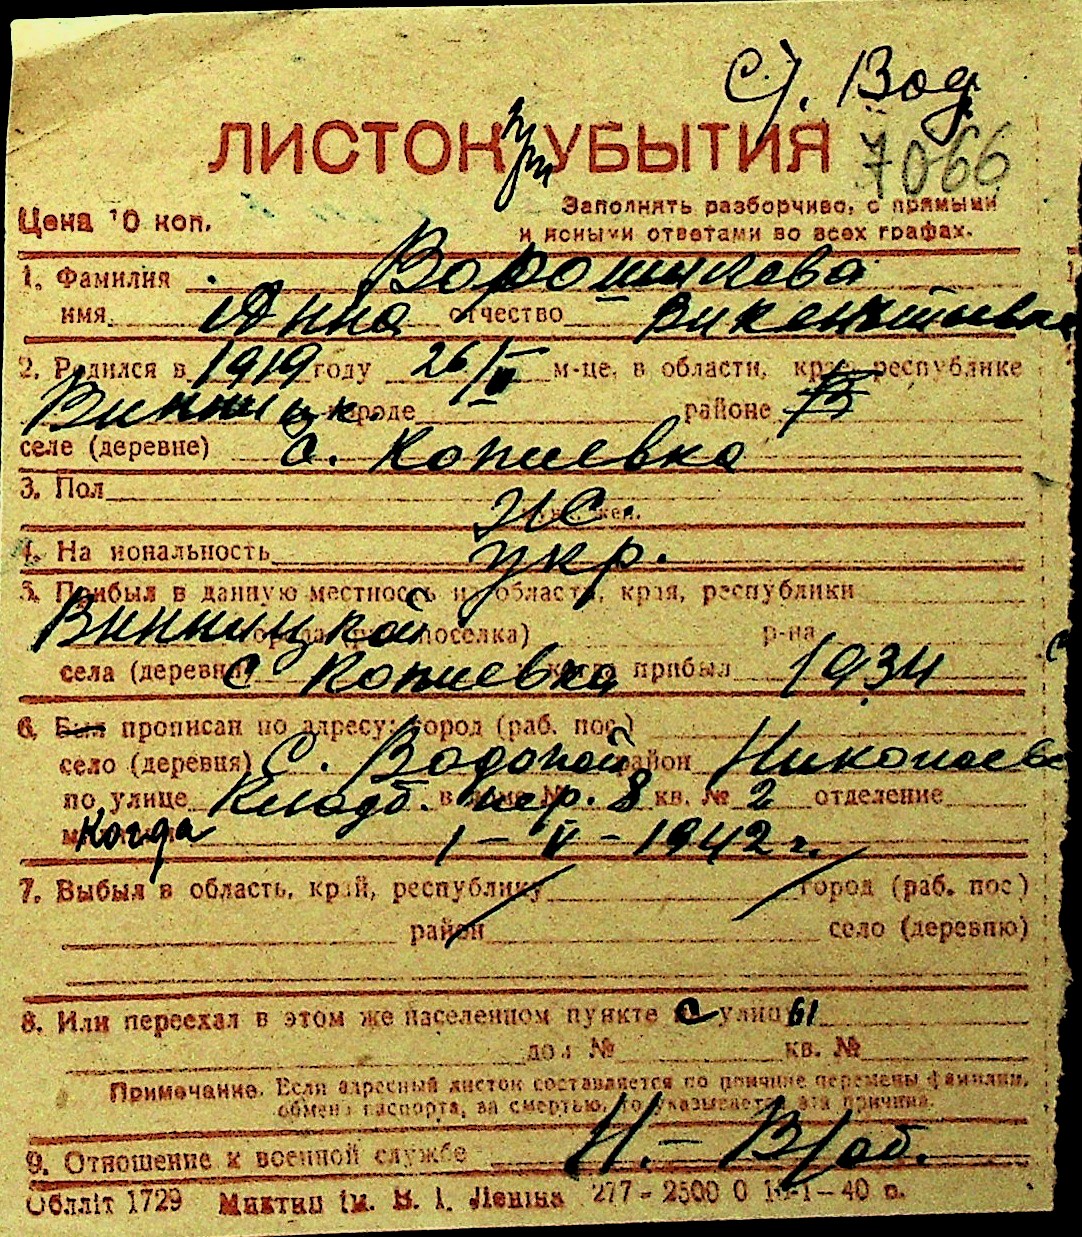 С/. Вод
ЛИСТОК при УБЫТИЯ
7066
Цена 10 коп.
Заполнять разборчиво, с прямыми
и ясными ответами во всех графах.
1. Фамилия Ворошилева
имя Анна отчество Викентьевна
2. Родился в 1919 году 26/V м-це, в области, крае, республике
Винницк. городе районе
селе (деревне) с. Копиевка
3. Пол ж.
4. Национальность укр.
5. Прибыл в данную местность из области, края, республики
Винницкой города (раб. поселка) р-на
села (деревни) с Копиевка и когда прибыл 1934
6. Был прописан по адресу: город (раб. пос.)
село (деревня) С. Водопой район Николаевс
по улице Кладб. пер. 8 кв. № 2 отделение
Когда 1-V-1942 г.
7. Выбыл в область, край, республику город (раб. пос.)
район село (деревню)
8. Или переехал в этом же населенном пункте с улицы
дом № кв. №
Примечание. Если адресный листок составляется по причине перемены фамилии,
обмена паспорта, за смертью, то указывается эта причина.
9. Отношение к военной службе Н.-В/об.
Облліт 1729 ім. В. І. Леніна 277-2500 0 40 р.